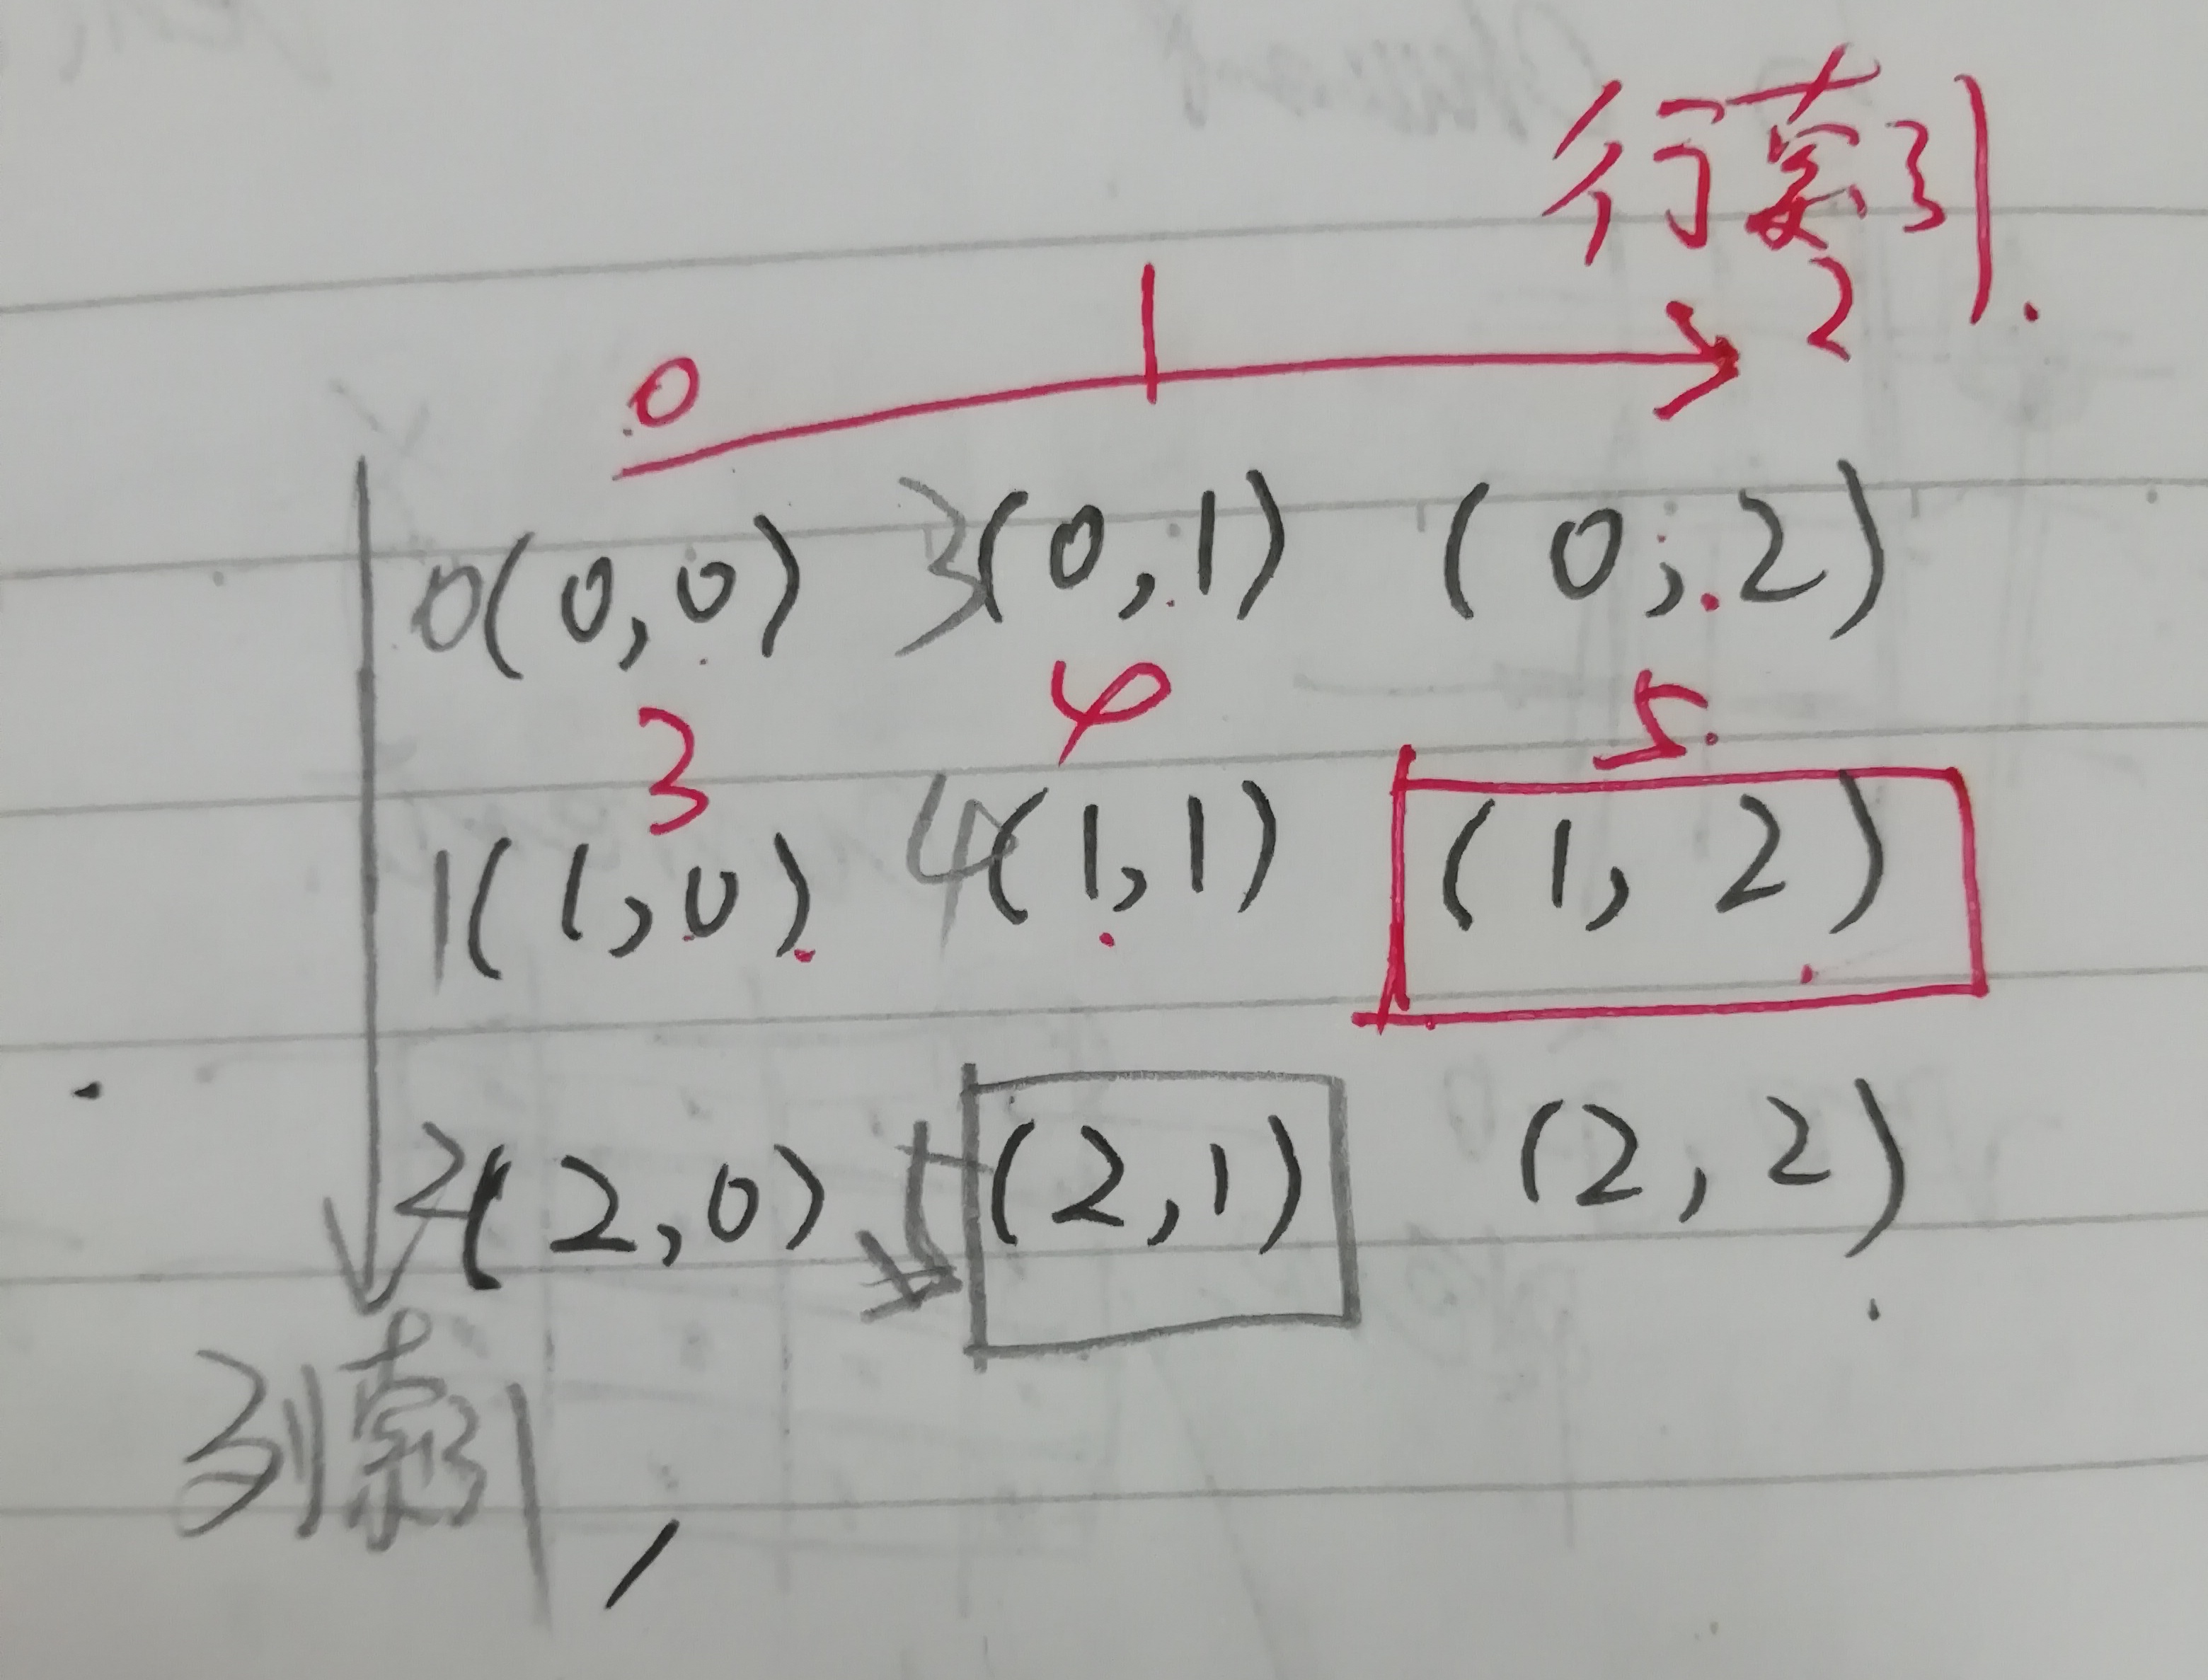 行索引
0 1 2
0(0,0) 3(0,1) (0,2)
3 4 5
1(1,0) 4(1,1) (1,2)
2(2,0) 5(2,1) (2,2)
列索引